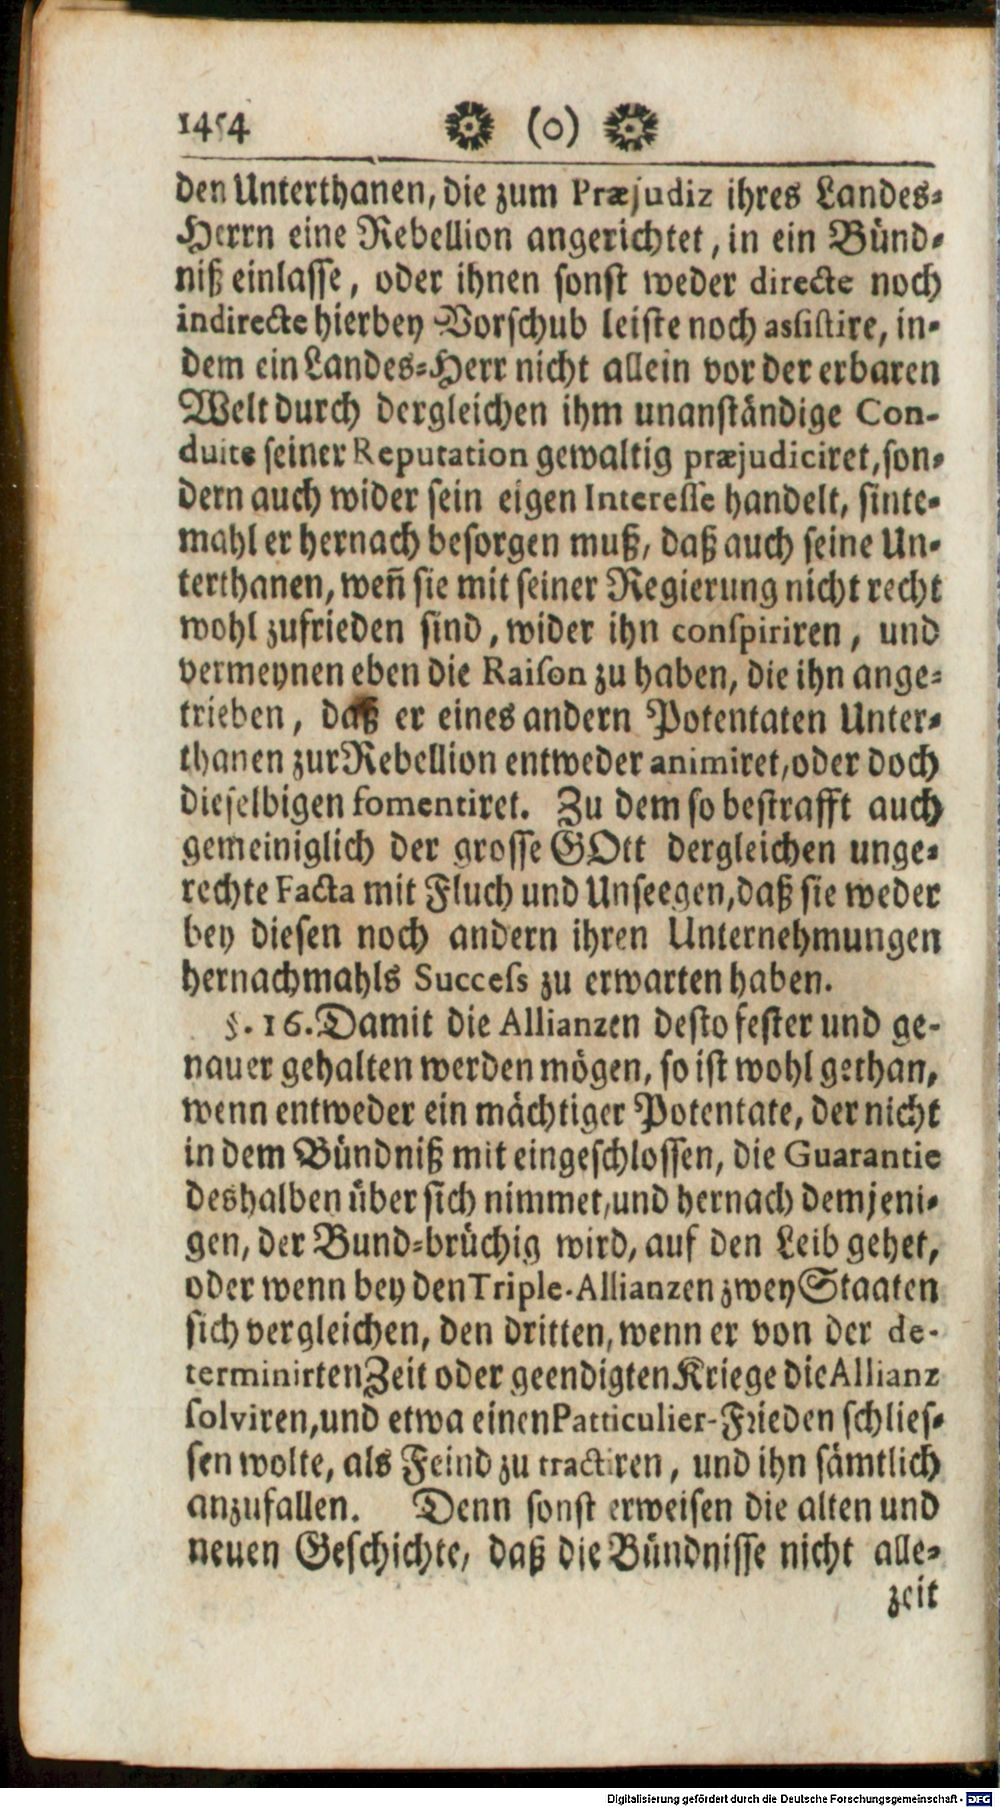 1454 (o)
den Unterthanen, die zum Præjudiz ihres Landes-
Herrn eine Rebellion angerichtet, in ein Bünd-
niß einlasse, oder ihnen sonst weder directe noch
indirecte hierbey Vorschub leiste noch assistire, in-
dem ein Landes-Herr nicht allein vor der erbaren
Welt durch dergleichen ihm unanständige Con-
duite seiner Reputation gewaltig præjudiciret, son-
dern auch wider sein eigen Interesse handelt, sinte-
mahl er hernach besorgen muß, daß auch seine Un-
terthanen, weñ sie mit seiner Regierung nicht recht
wohl zufrieden sind, wider ihn conspiriren, und
vermeynen eben die Raison zu haben, die ihn ange-
trieben, daß er eines andern Potentaten Unter-
thanen zur Rebellion entweder animiret, oder doch
dieselbigen fomentiret. Zu dem so bestrafft auch
gemeiniglich der grosse GOtt dergleichen unge-
rechte Facta mit Fluch und Unseegen, daß sie weder
bey diesen noch andern ihren Unternehmungen
hernachmahls Success zu erwarten haben.
§. 16. Damit die Allianzen desto fester und ge-
nauer gehalten werden mögen, so ist wohl gethan,
wenn entweder ein mächtiger Potentate, der nicht
in dem Bündniß mit eingeschlossen, die Guarantie
deshalben über sich nimmet, und hernach demjeni-
gen, der Bund-brüchig wird, auf den Leib gehet,
oder wenn bey den Triple-Allianzen zwey Staaten
sich vergleichen, den dritten, wenn er von der de-
terminirten Zeit oder geendigten Kriege die Allianz
solviren, und etwa einen Particulier-Frieden schlies-
sen wolte, als Feind zu tractiren, und ihn sämtlich
anzufallen. Denn sonst erweisen die alten und
neuen Geschichte, daß die Bündnisse nicht alle-
zeit
Digitalisierung gefördert durch die Deutsche Forschungsgemeinschaft - DFG